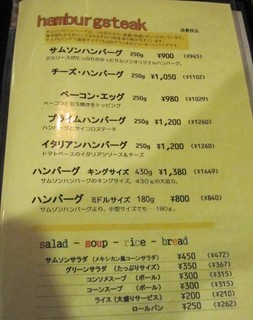 hamburgsteak
消費税込
サムソンハンバーグ 250g ¥900 (¥945)
デミソースがたっぷりかかったサムソンオリジナルハンバーグ。
チーズ・ハンバーグ 250g ¥1,050 (¥1102)
ベーコン・エッグ 250g ¥980 (¥1029)
ベーコンと目玉焼きをトッピング
プライムハンバーグ 250g ¥1,200 (¥1260)
ハンバーグとサイコロステーキ
イタリアンハンバーグ 250g ¥1,200 (¥1260)
トマトベースのイタリアンソース&チーズ
ハンバーグ キングサイズ 430g ¥1,380 (¥1449)
サムソンハンバーグのキングサイズ。430gの大迫力。
ハンバーグ ミドルサイズ 180g ¥800 (¥840)
サムソンハンバーグより、小型サイズでも…180g。
salad - soup - rice - bread
サムソンサラダ (メキシカン風コーンサラダ) ¥450 (¥472)
グリーンサラダ (たっぷりサイズ) ¥350 (¥367)
コンソメスープ (ボール) ¥300 (¥315)
コーンスープ (ボール) ¥300 (¥315)
ライス (大盛りサービス) ¥200 (¥210)
ロールパン ¥250 (¥262)